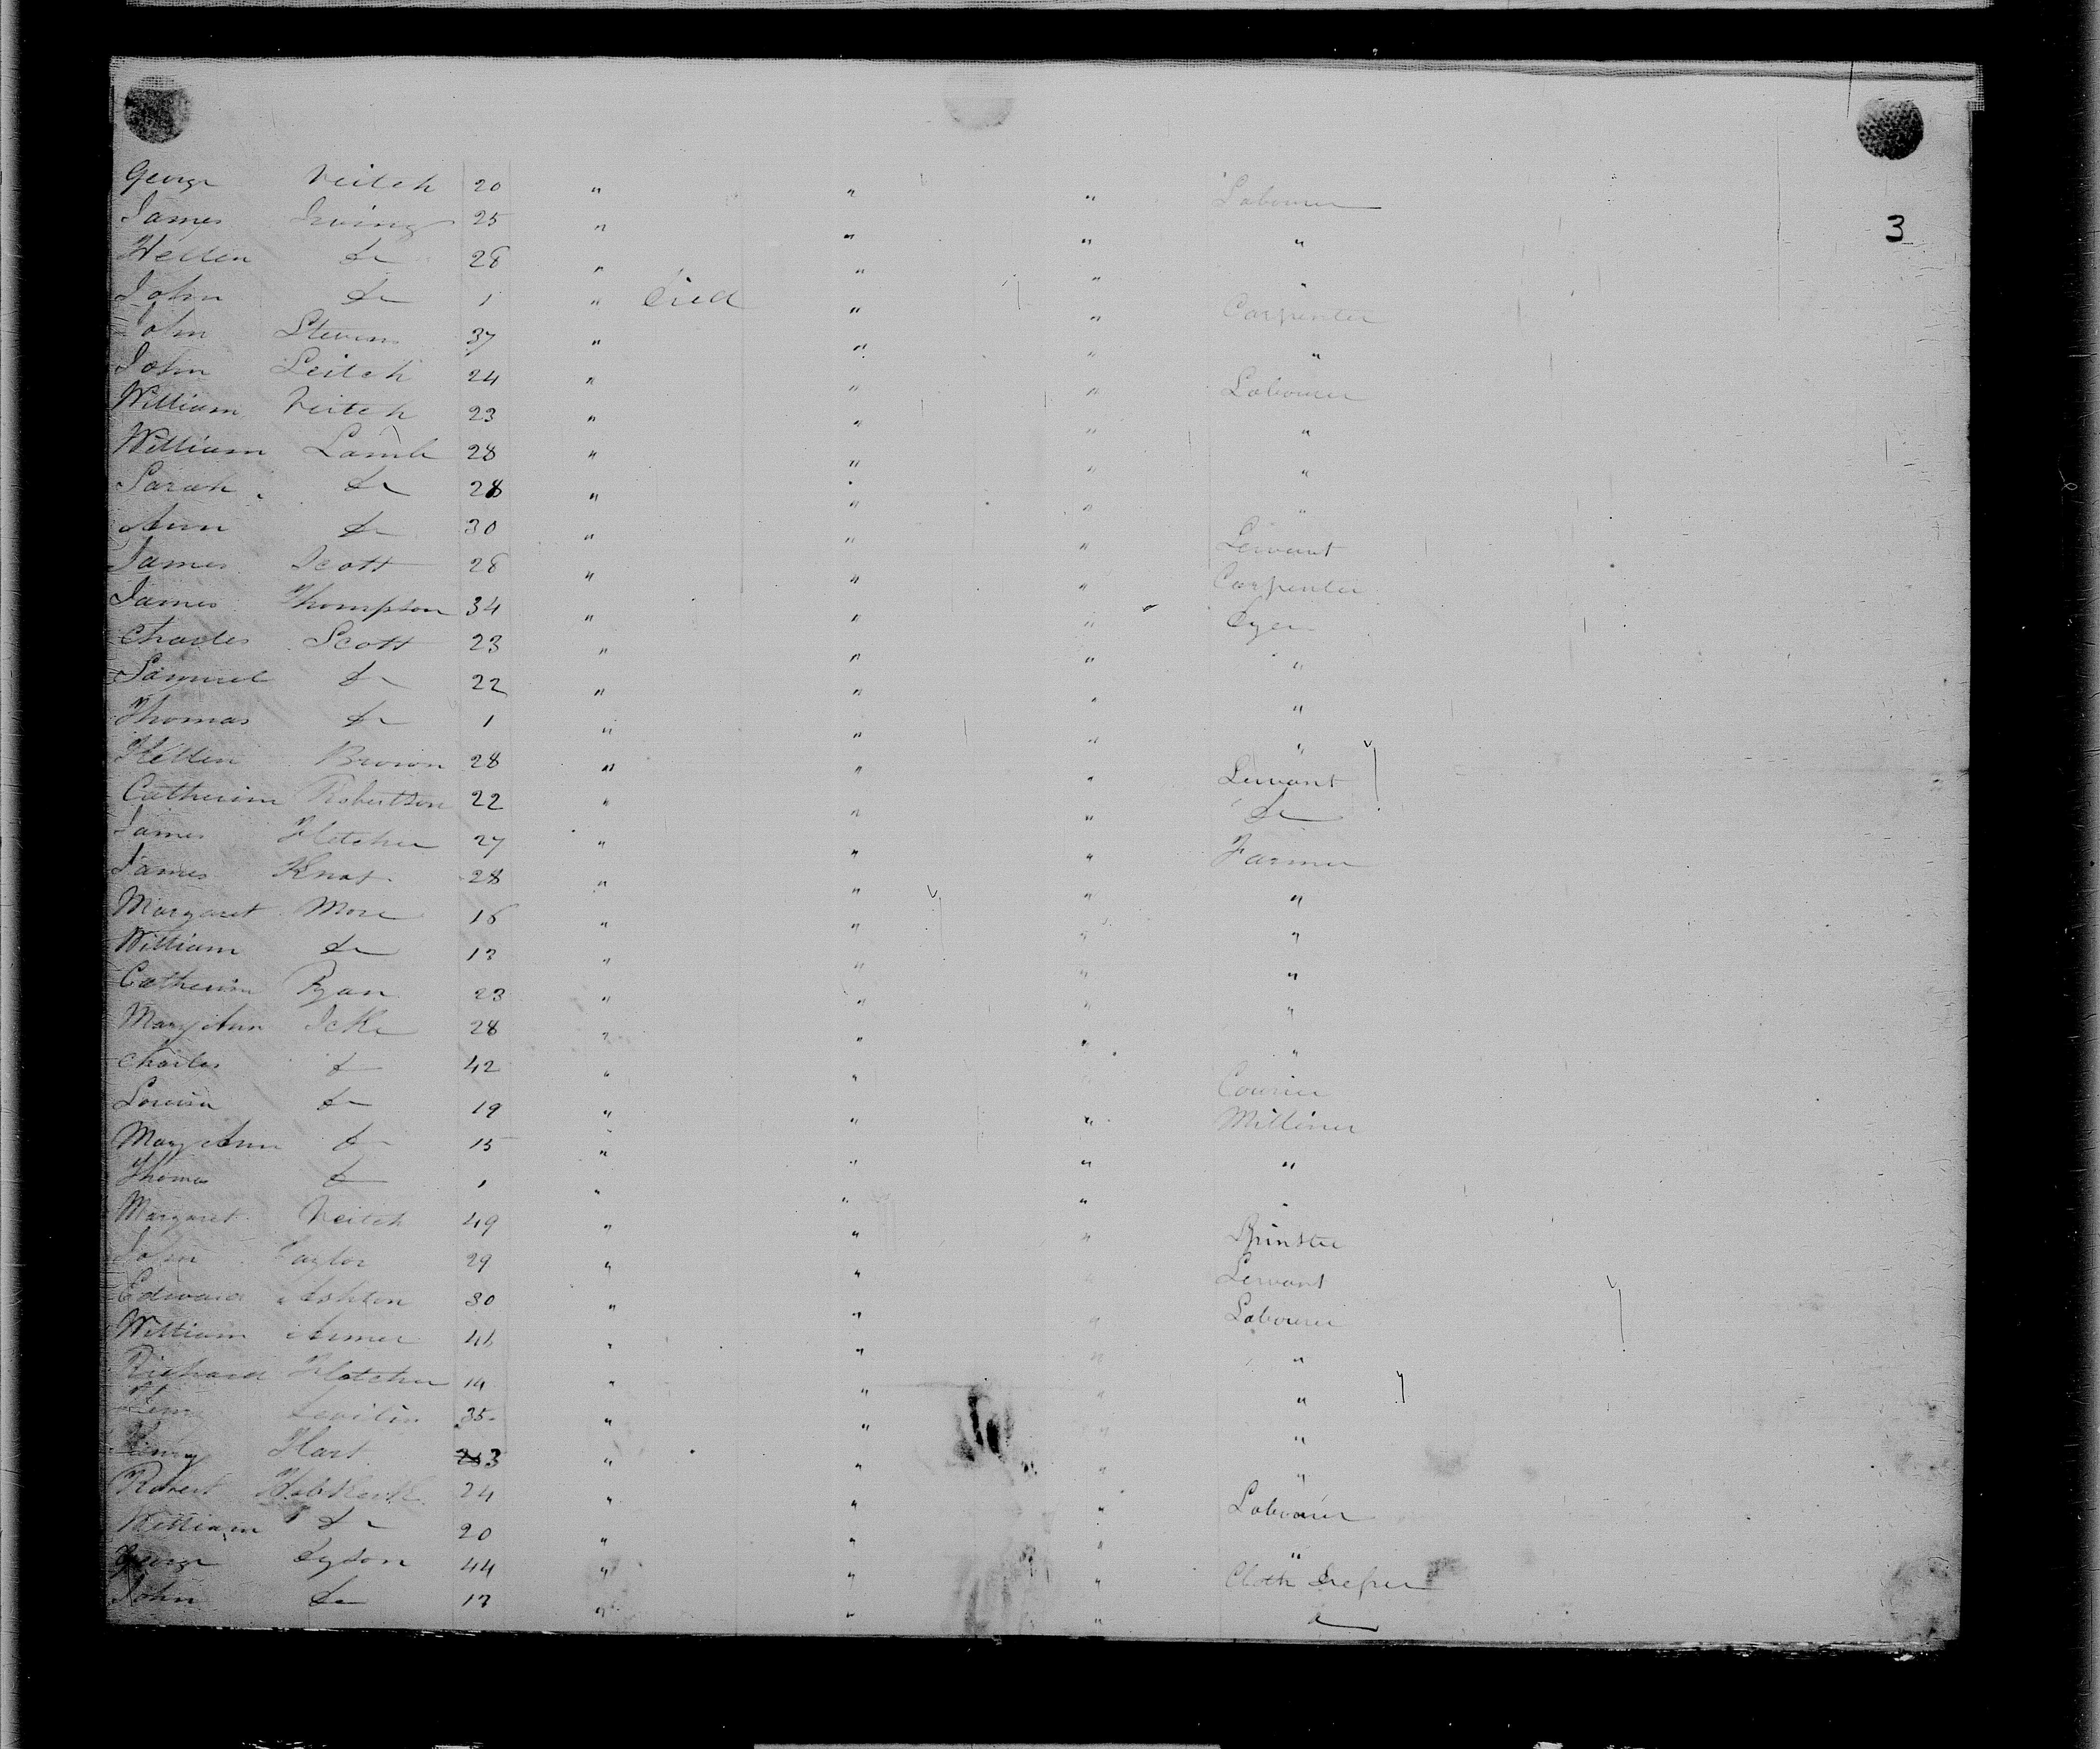 3
George Veitch 20 " " " Labourer
James Irving 25 " " " "
Hellen Do 28 " " " "
John Do 1 " Died " " Carpenter
John Stevens 37 " " " "
John Leitch 24 " " " Labourer
William Veitch 23 " " " "
William Lamb 28 " " " "
Sarah Do 28 " " " "
Ann Do 30 " " " Servant
James Scott 28 " " " Carpenter
James Thompson 34 " " " Dyer
Charles Scott 23 " " " "
Samuel Do 22 " " " "
Thomas Do 1 " " " "
Hellen Brown 28 " " " Servant
Catherine Robertson 22 " " " Do
James Fletcher 27 " " " Farmer
James Knox 28 " " " "
Margaret More 16 " " " "
William Do 13 " " " "
Catherine Ryan 23 " " " "
Mary Ann 28 " " " "
Charles Do 42 " " Courier
Louisa Do 19 " " " Milliner
Mary Ann Do 15 " " " "
Thomas Do 1 " " " "
Margaret Veitch 49 " " " Spinster
John Taylor 29 " " " Servant
Edward Ashton 30 " " " Labourer
William Armer " " " "
Richard Fletcher " " " "
35 " " " "
Henry Hart 3 " " " "
Robert 24 " " " Labourer
William Do 20 " " " "
George 44 " " " Cloth
John Do 13 " " " Do